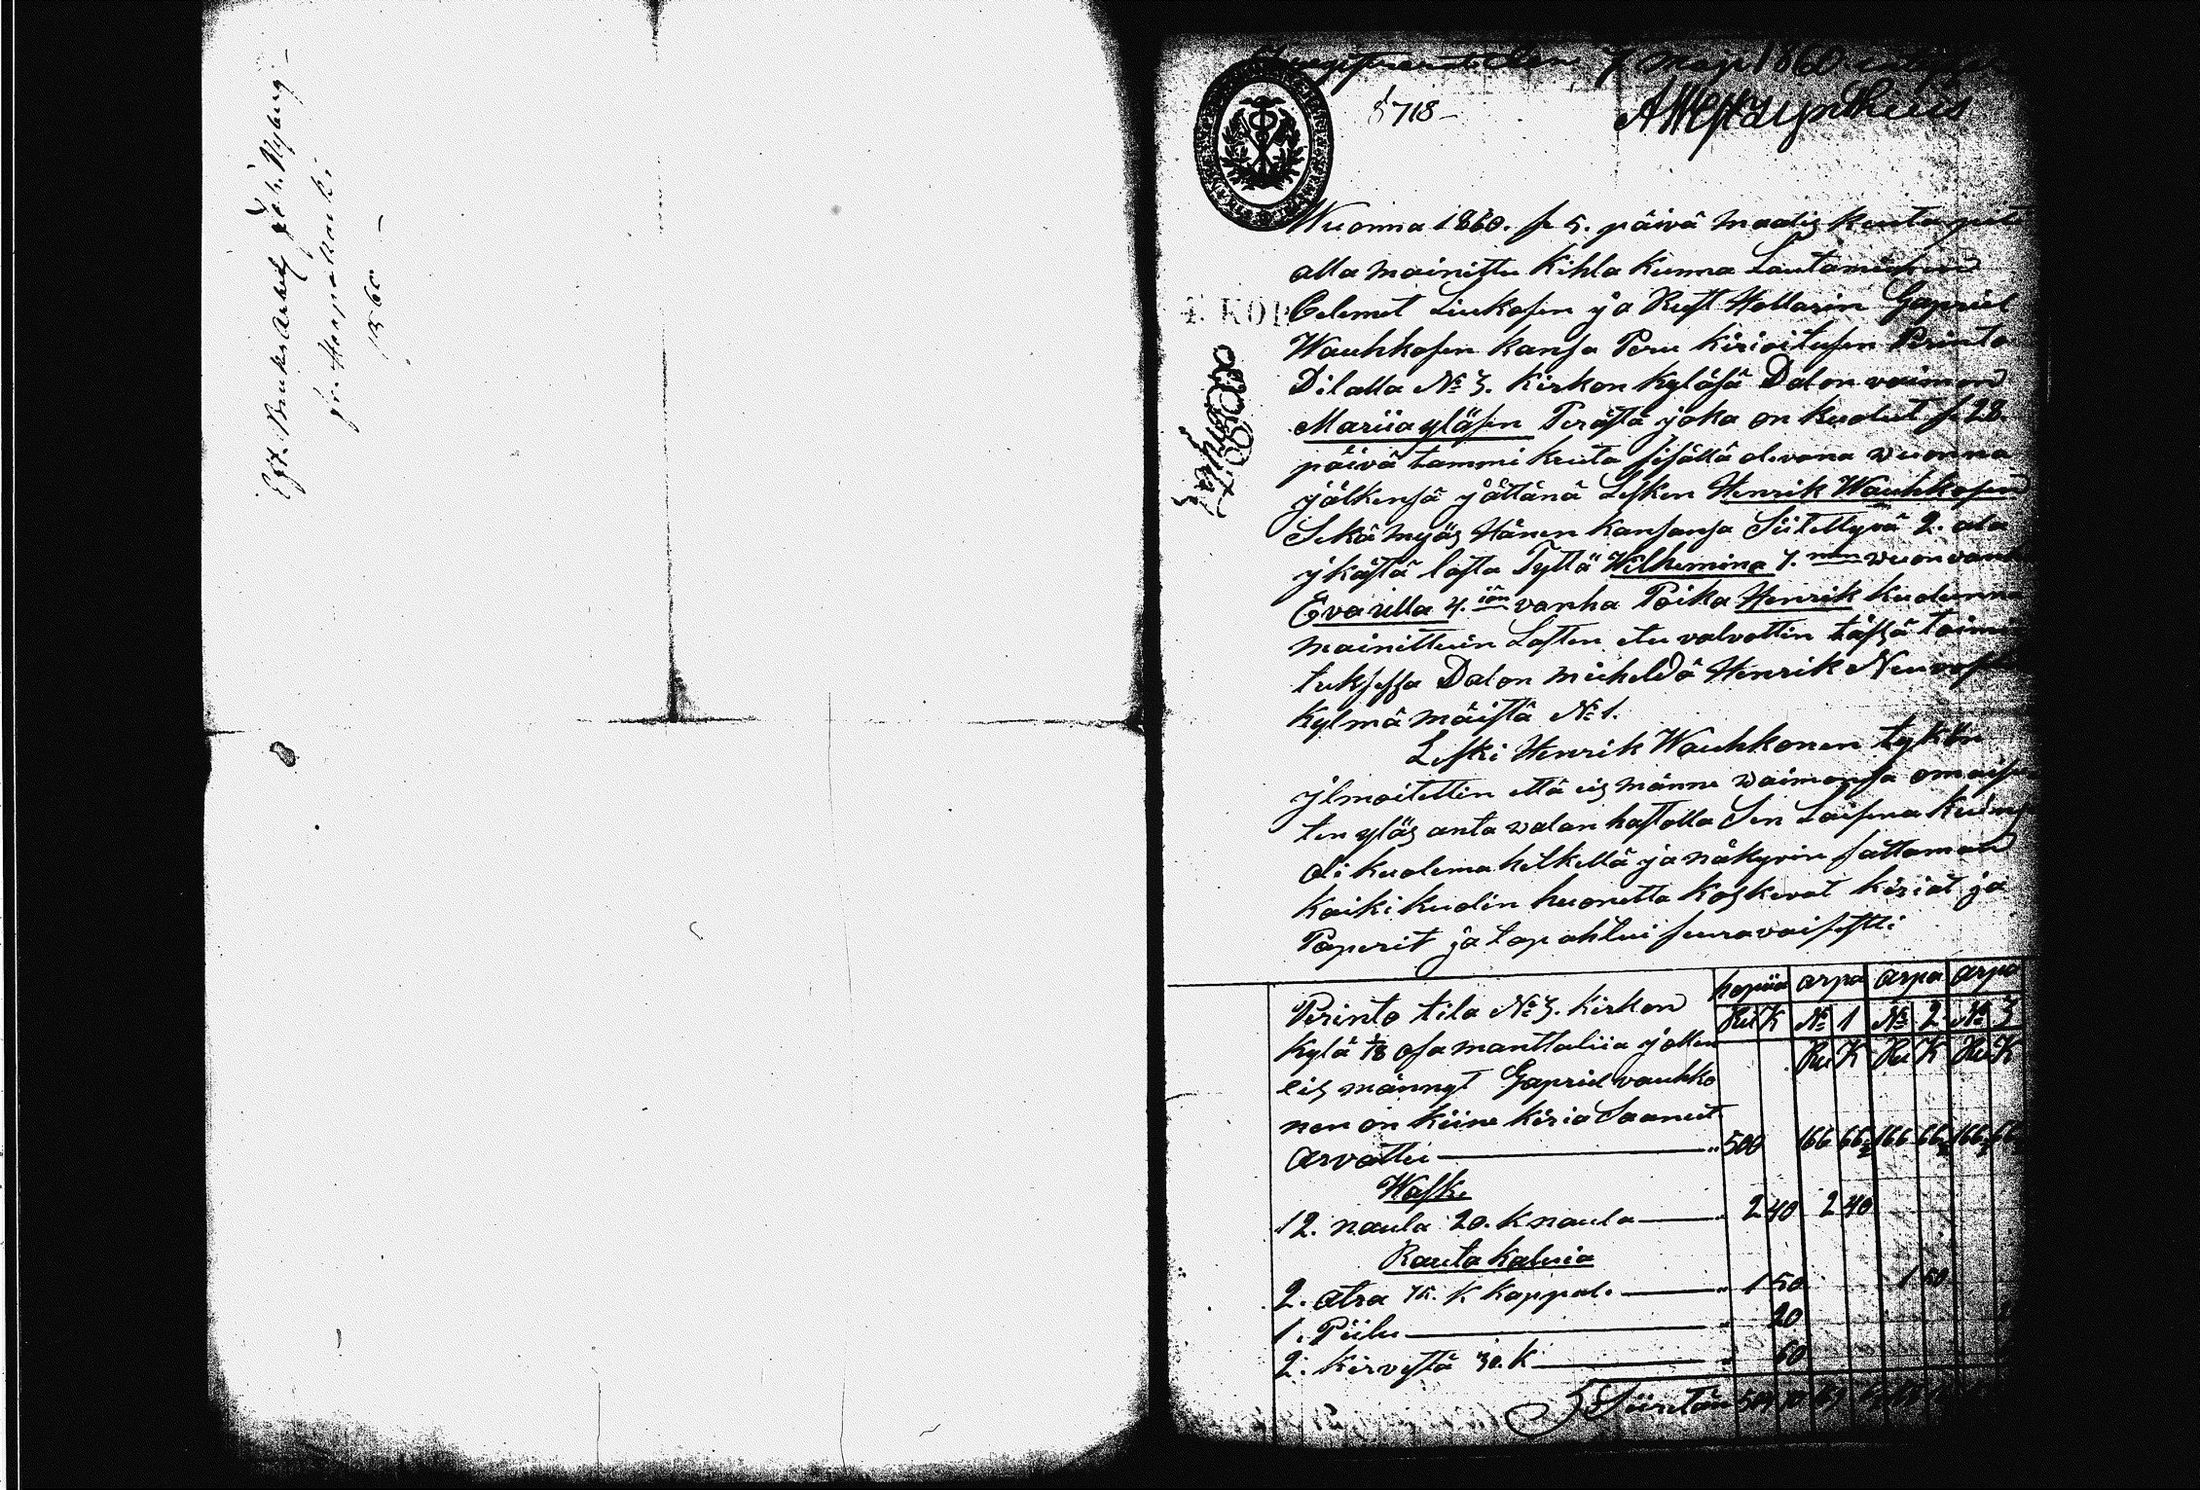 Hr. Haapalaski
1860
den 7 Maji 1860
§ 718
Wuonna 1860. se 5. päivä Maadis kuuta piti
alla mainittu Kihla kunna Lautamiehen
Celemet Liukosen ja Rust Hollarin Gapriel
Wauhkosen kansa Peru kirioitusen Perinto
Dilalla № 3. kirkon kyläsä Dalon vaimon
Mariia yläsen Peräst̃ä joka on kuolut se 28.
päivä tammi kuuta sisällä olevana wuonna
jälkensä jättänä Lesken Henrik Wauhkosen
Sekä myös Hänen kansansa Siitettyvä 2. ala
ykästä lasta Tyttä Wilhemina 7. män wuon vanha
Eva ulla 4. iän vanha Poika Henrik kuolemna
mainittuin Lasten etu valvottin tässä toimi
tuksessa Dalon mieheldä Henrik Neuvost
Kylmä mäistä № 1.
Leski Henrik Wauhkonen tykön
ylmoitettin että eis männe waimonsa omaisu
ten yläs anta valan hastolla Sen Laisena kuin se
oli kuolema hetkellä ja näkyvin sattaman
kaiki kuolin huonetta koskevat kiriat ja
Paperit ja tapahtui seuravaisesti:
hopiia arpa arpa arpa
Rui K № 1 № 2 № 3
Ru K Ru K Ru K
Perinto tila № 3. kirkon
kylä 1/8 osa manttaliia jollen
eis männyt Gapriel vauhko
nen on kiine kiria Saanut
arvattu 500 166 66 2/3 166 66 2/3 166 66
Waske
12. naula 20. K naula 2 40 2 40
Rauta kaluia
2. atra 75. K kappal. 1 50 1 50
1. Piilu 20
2. kirvestä 30. K 60
Siiretän
4. KOP